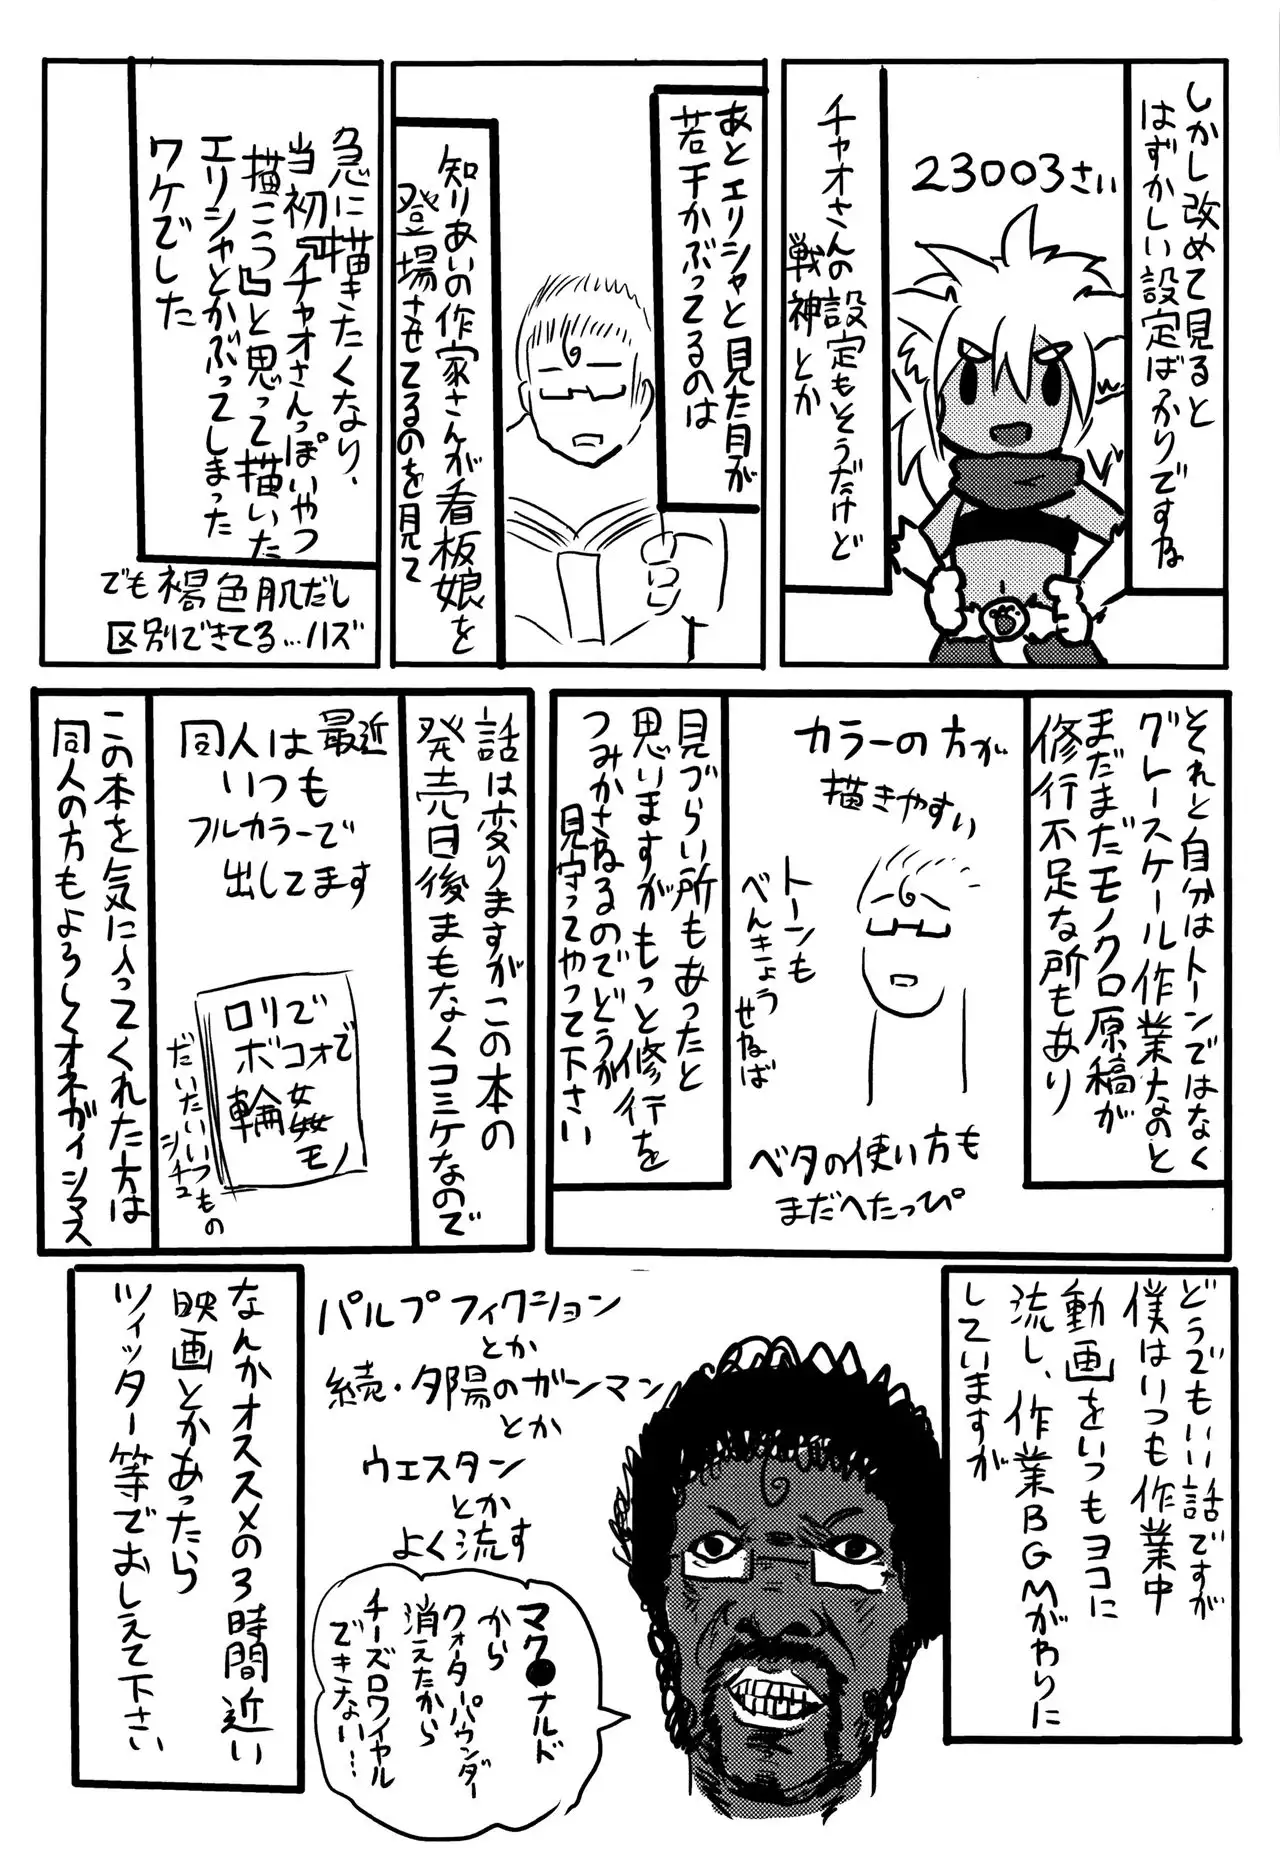 しかし改めて見ると
はずかしい設定ばかりですね
23003さい
チャオさんの設定もそうだけど
戦神とか
あとエリシャと見た目が
若干かぶってるのは
知りあいの作家さんが看板娘を
登場させてるのを見て
急に描きたくなり、
当初『チャオさんっぽいやつ
描こう凸と思って描いた
エリシャとかぶってしまった
ワケでした
でも褐色肌だし
区別できてる…ハズ
それと自分はトーンではなく
グレースケール作業なのと
まだまだモノクロ原稿が
修行不足な所もあり
カラーの方が
描きやすい
トーンも
べんきょう
せねば
ベタの使い方も
まだへたっぴ
見づらい所もあったと
思いますがもっと修行を
つみかさねるのでどうか
見守ってやって下さい
話は変りますがこの本の
発売日後まもなくコミケなので
最近
同人は
いつも
フルカラーで
出してます
ロリで
ボコォで
輪姦
モノ
だいたいいつもの
シチュ
この本を気に入ってくれた方は
同人の方もよろしくオネガイシマス
どうでもいい話ですが
僕はいつも作業中
動画をいつもヨコに
流し、作業BGMがわりに
していますが
パルプフィクション
とか
続・夕陽のガンマン
とか
ウエスタン
とか
よく流す
マク●ナルド
から
クォーターパウンダー
消えたから
チーズロワイヤル
できない…
なんかオススメの3時間近い
映画とかあったら
ツイッター等でおしえて下さい